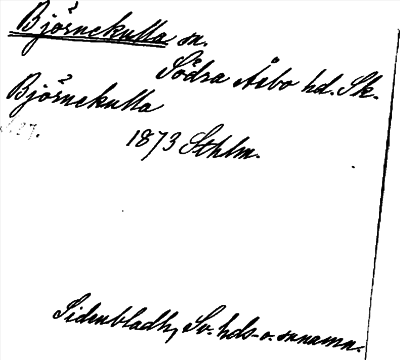 Björnekulla sn.
Södra Åsbo hd. Sk.
Björnekulla
27.
1873 Sthlm.
Sidenbladh, Sv. hds- o. snnamn.